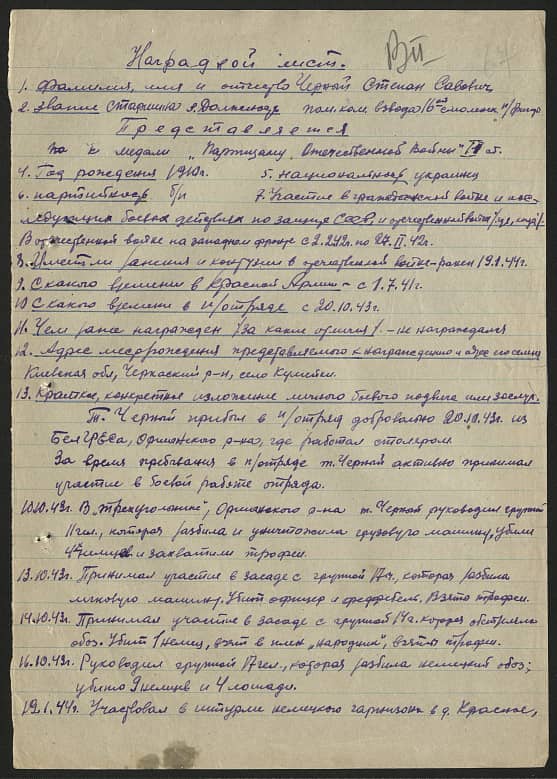 Наградной лист.
1. Фамилия, имя и отчество Черный Степан Савович
2. Звание старшина я. Должность пом. ком. взвода 16
Представляется
к медали „Партизану Отечественной Войны" II ст.
4. Год рождения 1910г. 5. Национальность украинец
6. партийность б/п 7. Участие в гражданской войне и пос-
ледующих боевых действиях по защите СССР и отечественной войне /где, когда/.
В отечественной войне на западном фронте с 2.2.42г. по 27.II.42г.
8. Имеет ли ранения и контузии в отечественной войне - ранен 19.1.44г.
9. С какого времени в Красной Армии - с 1.7.41г.
10 С какого времени в п/отряде с 20.10.43г.
11. Чем ранее награжден /за какие отличия/. - не награждался
12. Адрес месторождения представляемого к награждению и адрес его семьи
Киевская обл, Черкаский р-н, село
13. Краткое, конкретное изложение личного боевого подвига или заслуг.
Т. Черный прибыл в п/отряд добровольно 20.10.43г. из
БелГРЭСа, Оршанского р-на, где работал столяром.
За время пребывания в п/отряде т. Черный активно принимал
участие в боевой работе отряда.
10.10.43г. В „треугольнике", Оршанского р-на т. Черный руководил группой
11чел., которая разбила и уничтожила грузовую машину, убили
4 немцев и захватили трофеи.
13.10.43г. Принимал участие в засаде с группой 17ч, которая разбила
легковую машину. Убит офицер и фельдфебель. Взято трофеи.
14.10.43г. Принимал участие в засаде с группой 14ч. которая обстреляла
обоз. Убит 1 немец, взят в плен „народник", взяты трофеи.
16.10.43г. Руководил группой 17чел., которая разбила немецкий обоз;
убито 9 немцев и 4 лошади.
19.1.44г. Участвовал в штурме немецкого гарнизона в д. Красное,